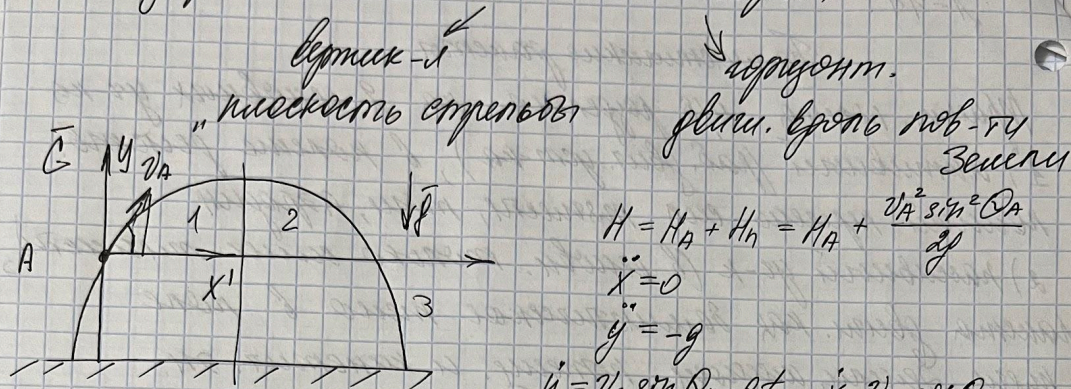 вертик-я
„плоскость стрельбы
горизонт.
двиг. вдоль пов-ти
Земли
G̅ y v_A
1 2 g̅
A
x' 3
H = H_A + H_n = H_A + v_A² sin² Θ_A / 2g
ẍ = 0
ÿ = -g